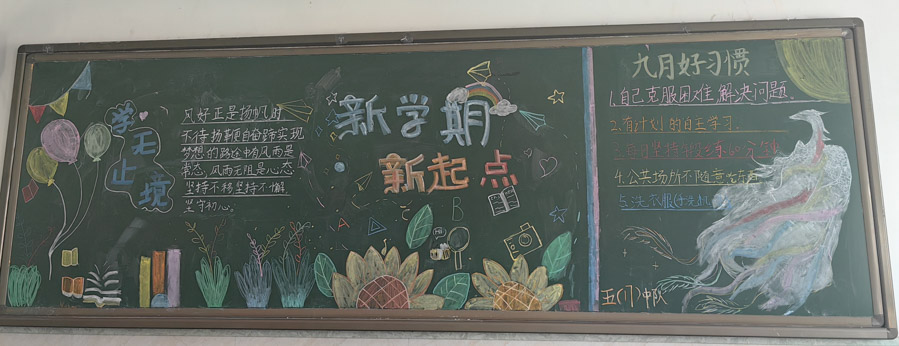 学无止境
风好正是扬帆时
不待扬鞭自奋蹄实现
梦想的路途中有风雨是
常态,风雨无阻是心态
坚持不移坚持不懈
坚守初心。
新学期
新起点
A
C
B
九月好习惯
1.自己克服困难解决问题.
2.有计划的自主学习.
每日坚持 60分钟
4.公共场所不随意
5.洗衣服
五(1)中队